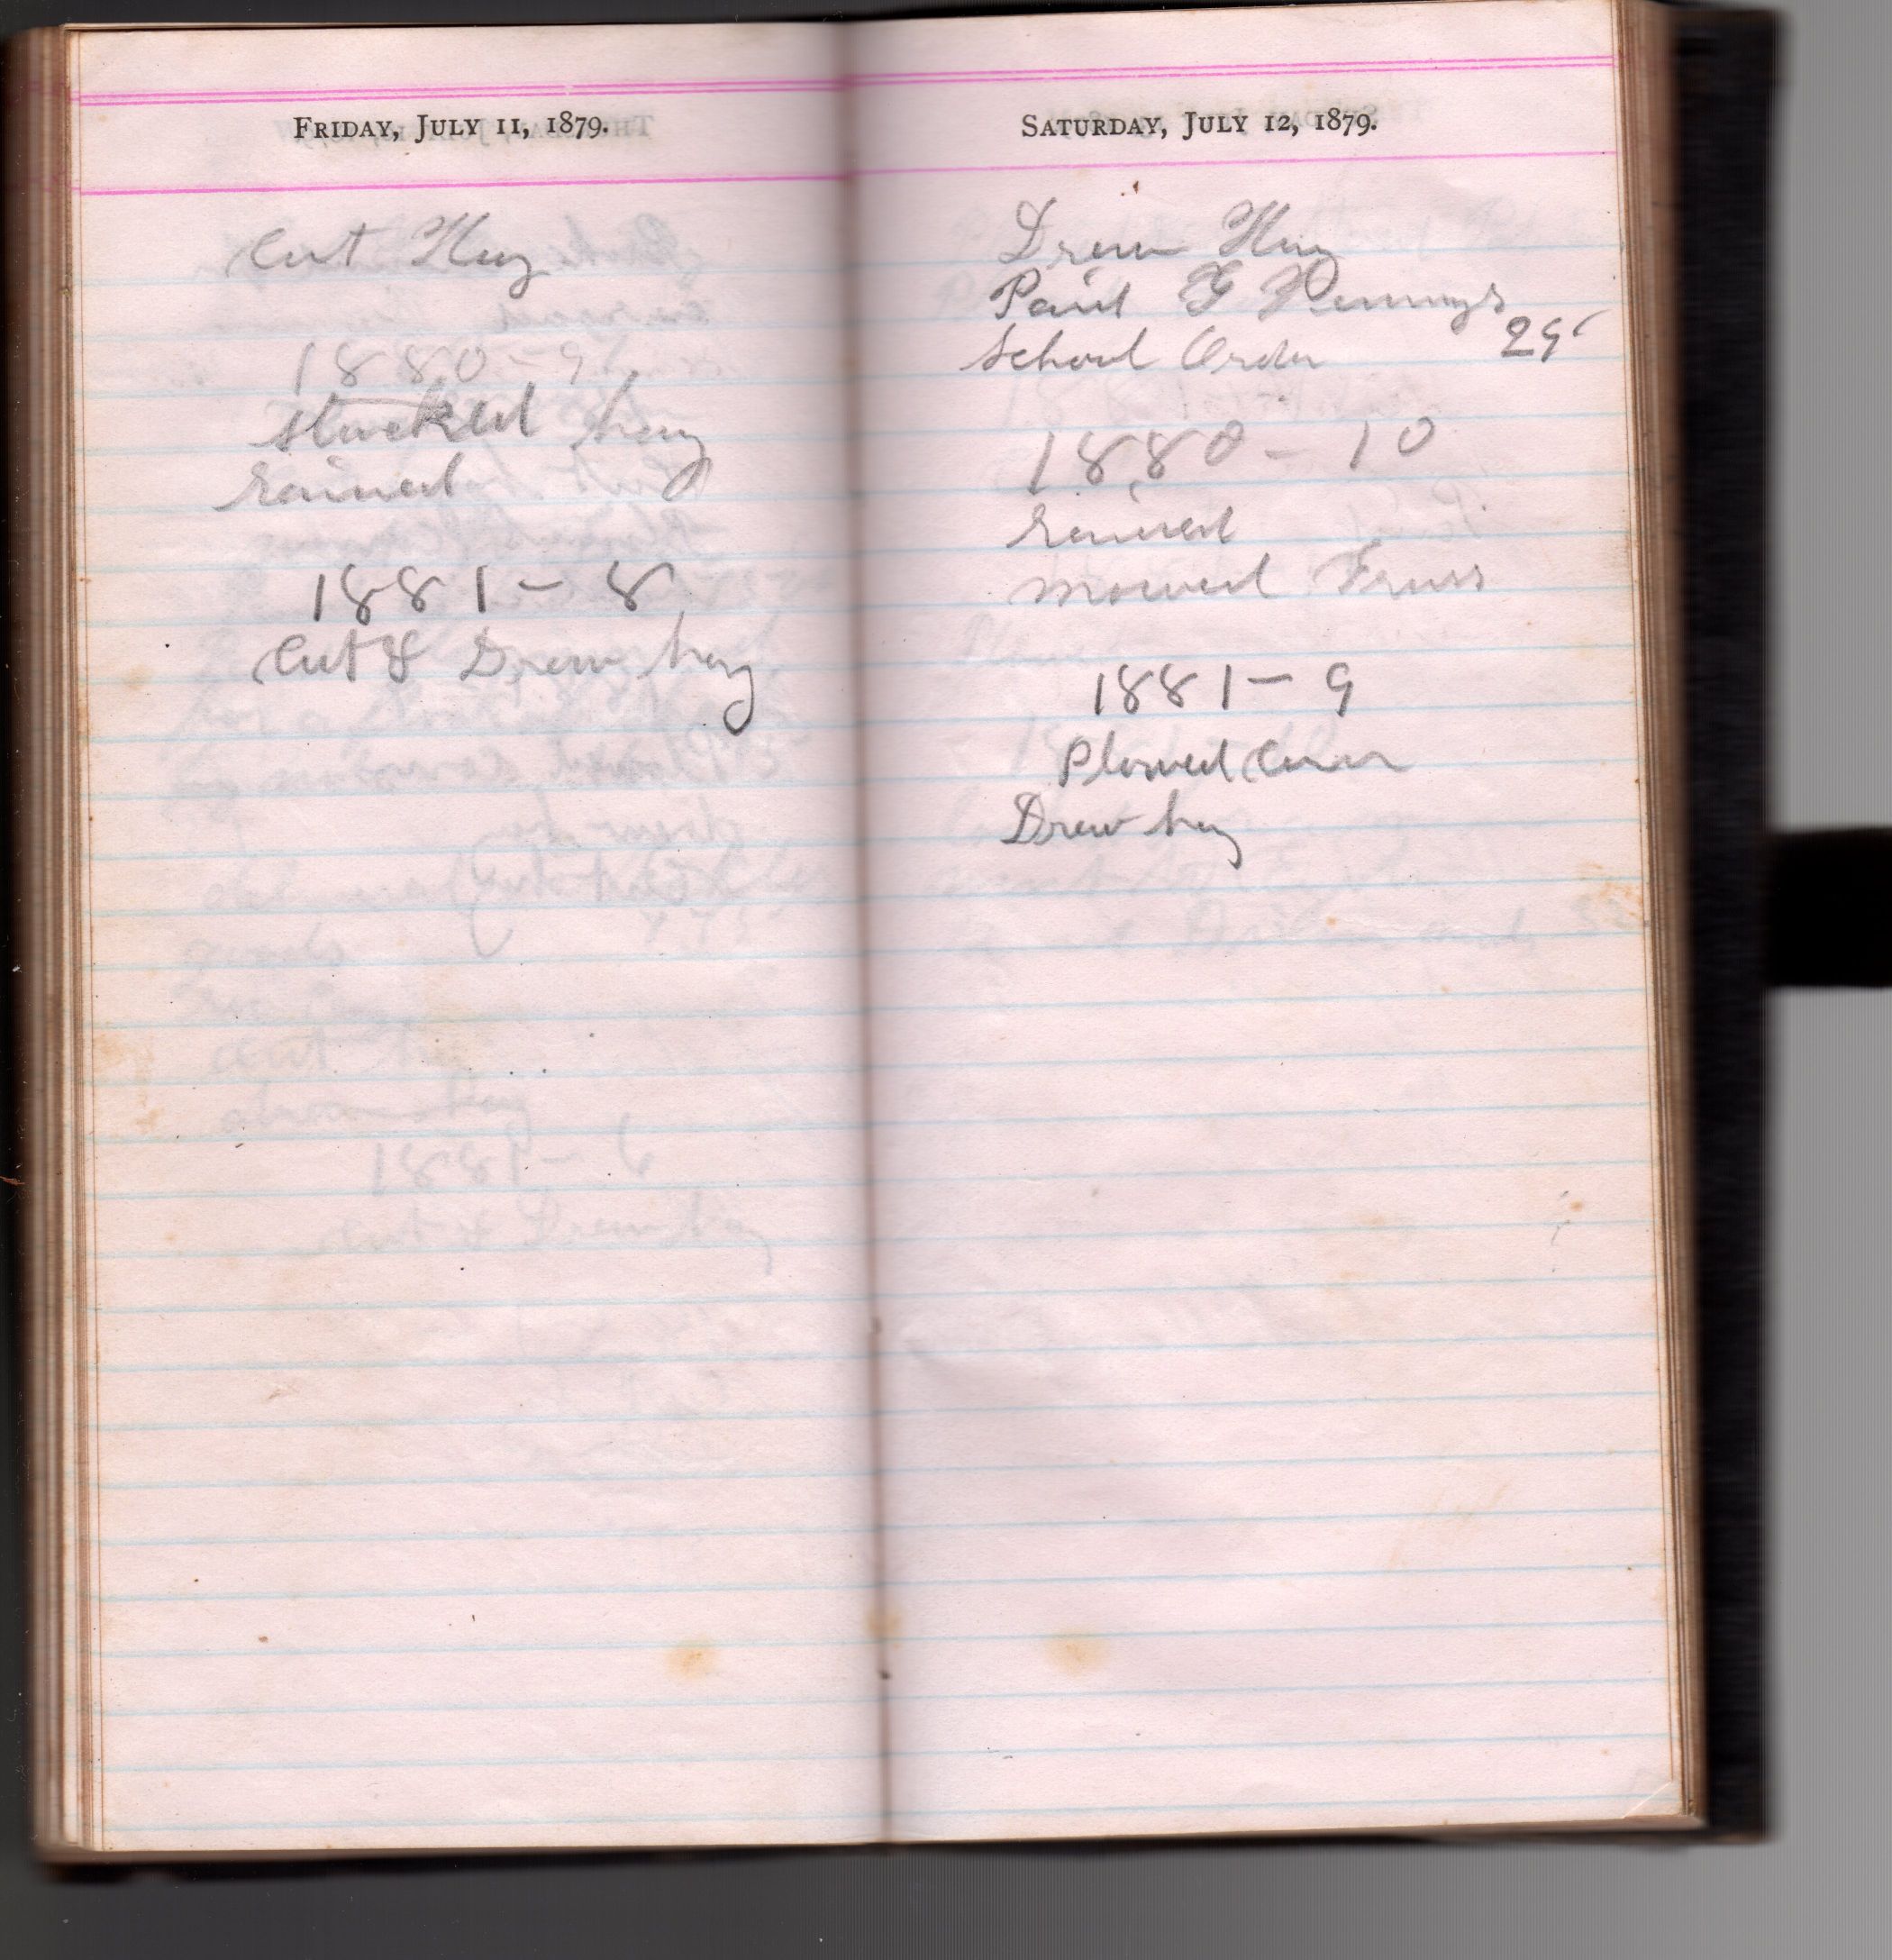 FRIDAY, JULY 11, 1879.
Cut Hay
1880-9
stacked hay
rained
1881-8
Cut & Drew hay
SATURDAY, JULY 12, 1879.
Drew Hay
Paid G
School Order 25
1880-10
rained
mowed
1881-9
Plowed Corn
Drew hay